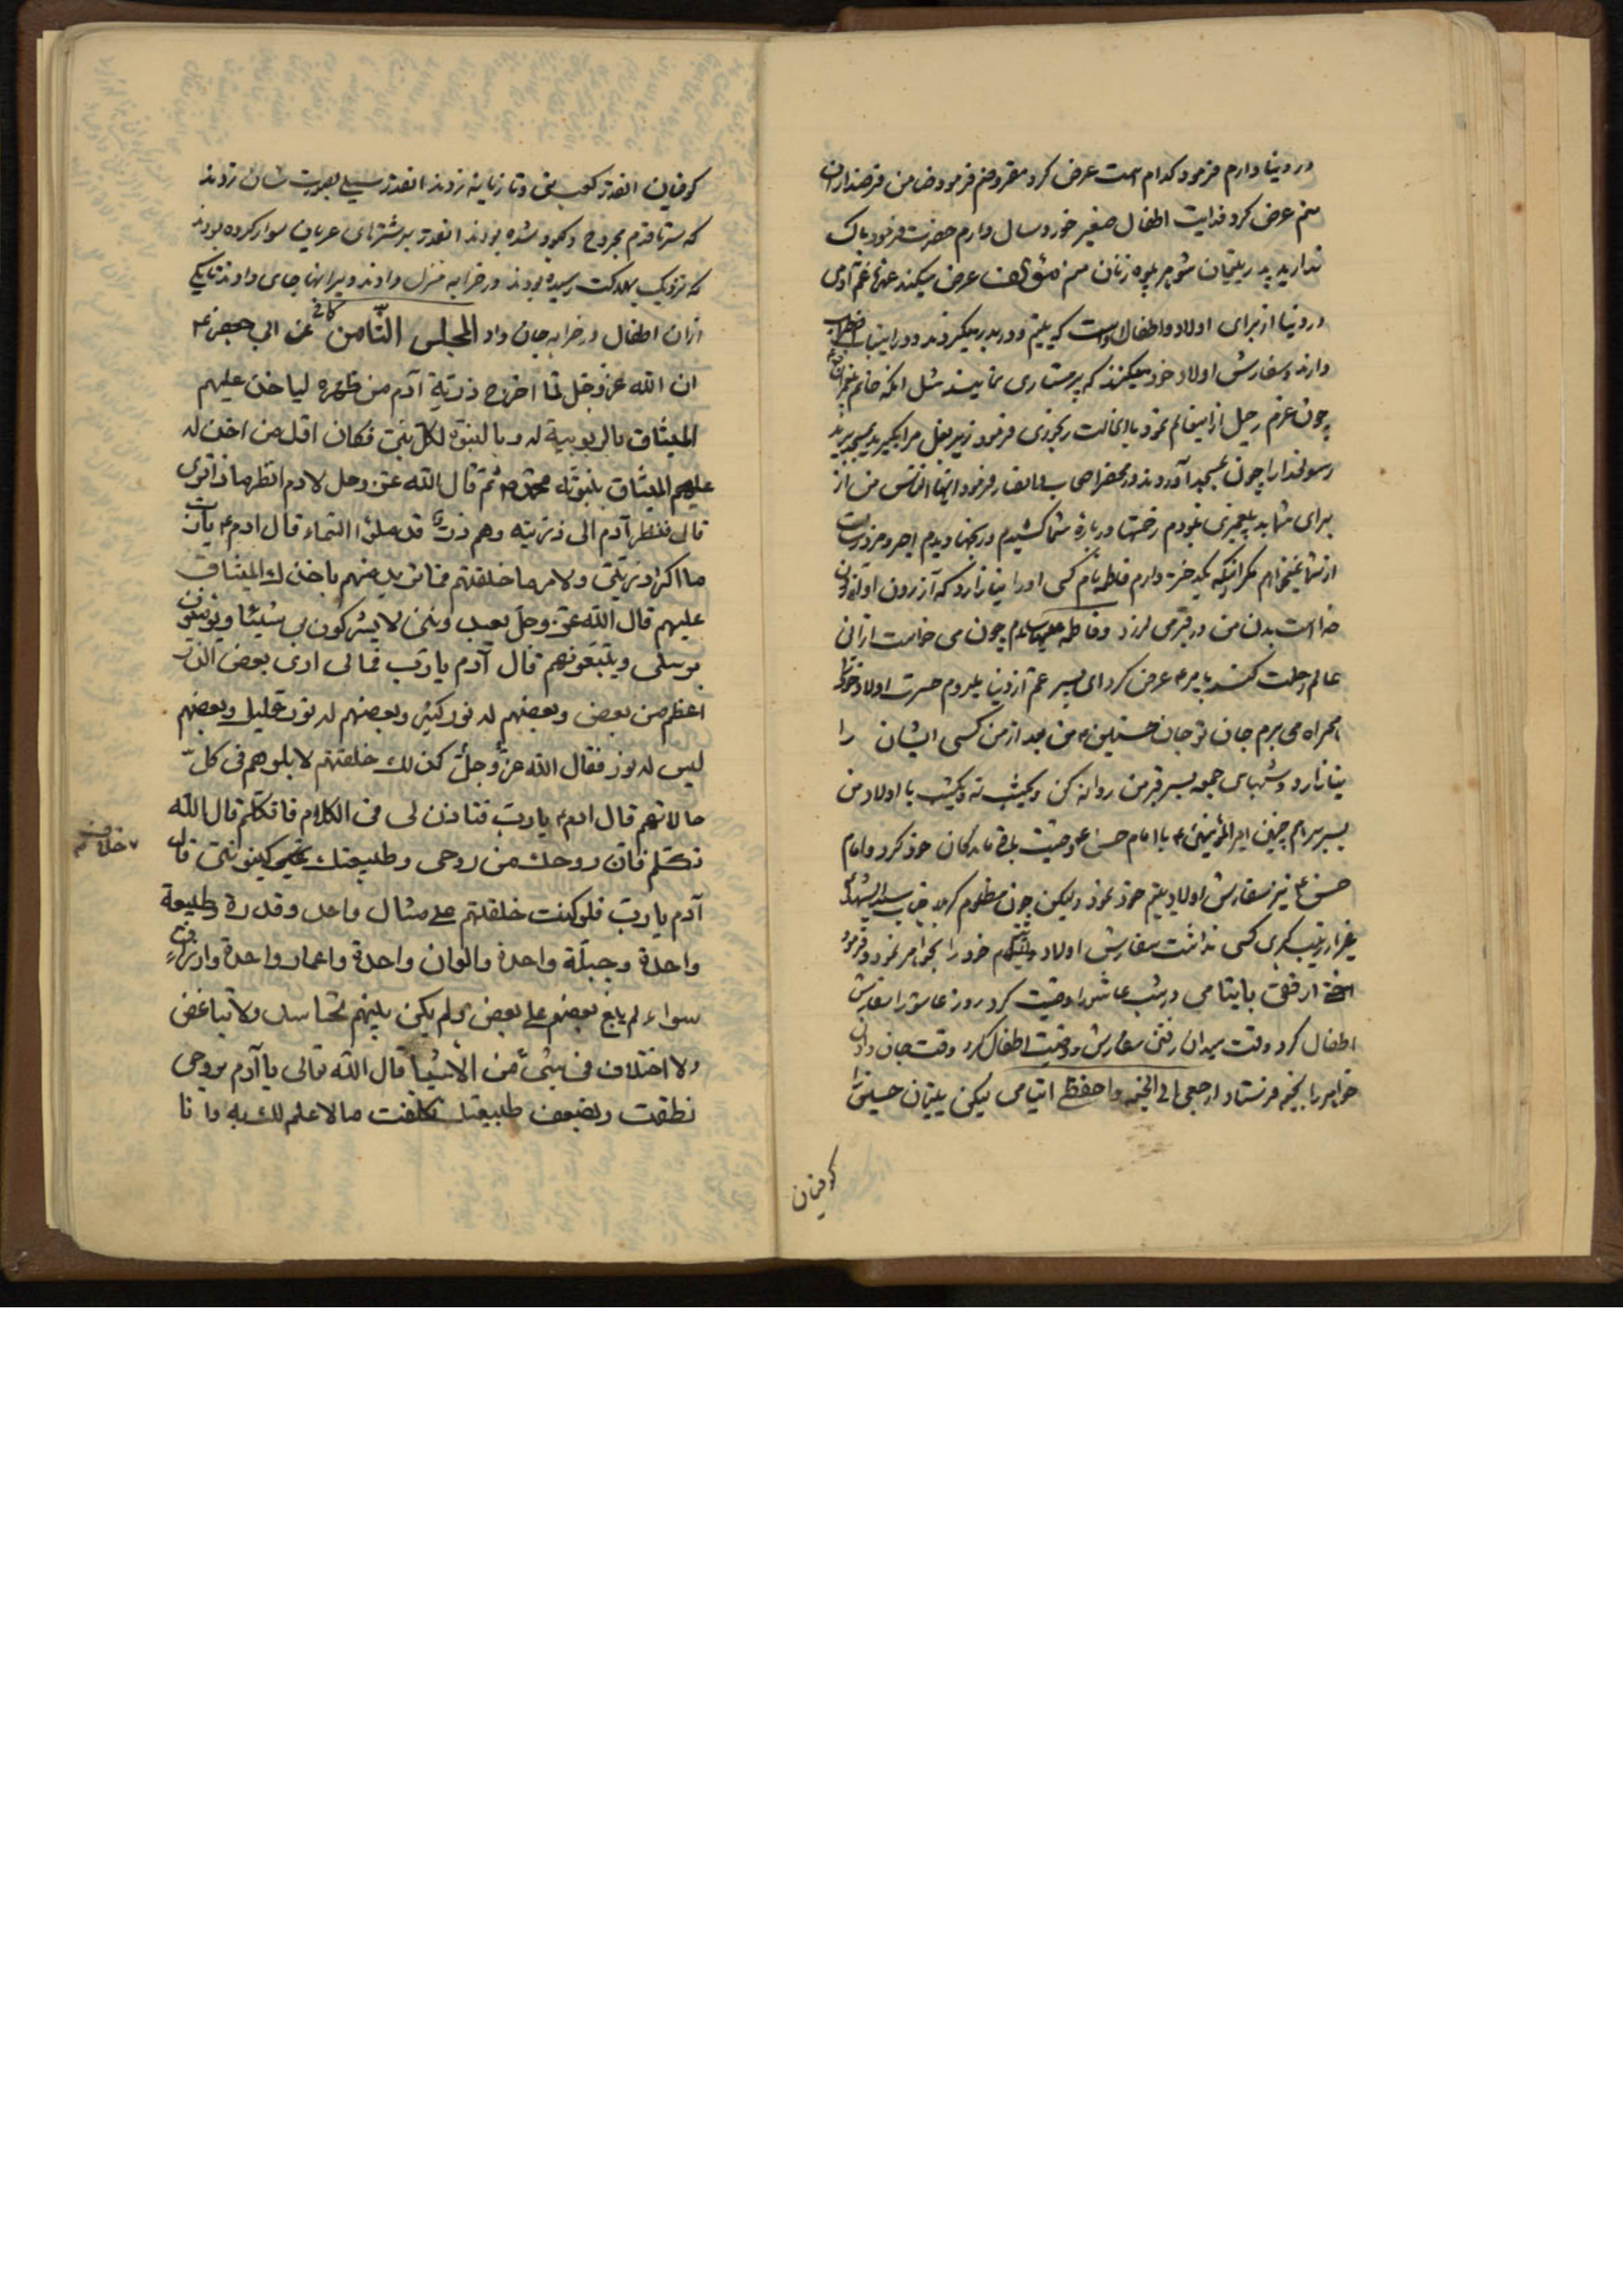 در دنیا دارم فرمود کدام است عرض کرد مقروضم فرمود ضامن قرضداران
منم عرض کرد فدایت اطفال صغیر خورد سال دارم حضرت فرمود باک
ندارید پدر یتیمان شوهر بیوه زنان منم مؤلف عرض میکند عزیزان غم آدمی
در دنیا از برای اولاد و اطفال اوست که یتیم و دربدر میکردند و در اینباب
دارند و سفارش اولاد خود میکنند که پرستاری نمایند مثل آنکه خاتم پیغمبران
چون عزم رحیل ازین عالم نمود با انحالت رنجوری فرمود زیر بغل مرا بگیرید بمسجد برید
رسولخدا را چون بمسجد آوردند در محضر اصحاب فرمود ایها الناس من از
برای شما بد پیغمبری نبودم زحمتها در باره شما کشیدم و رنجها دیدم اجر و مزد رسالت
از شما نمیخواهم مگر اینکه یکدختر دارم فاطمه نام کسی او را نیازارد که آزردن او آزردن
خداست بدن من در قبر می لرزد و فاطمه علیها سلام چون می خواست از این
عالم رحلت کند بامیر ع عرض کرد ای پسر عم از دنیا میروم حسرت اولاد خود را
همراه می برم جان تو جان حسنین ع من بعد از من کسی ایشان را
نیازارد و شبهای جمعه بسر قبر من روانه کن و یکشب نه و یکشب با اولاد من
بسر برم همچنین امیرالمؤمنین ع با امام حسن ع وصیت بازماندگان خود کرد و امام
حسن ع نیز سفارش اولاد یتیم خود نمود ولیکن چون مظلوم کربلا جناب سید الشهداء
بغیر از زینب کبری کسی نداشت سفارش اولاد یتیم خود را بخواهر نمود و فرمود
اختی ارفقی بایتامی در شب عاشورا وصیت کرد روز عاشورا سفارش
اطفال کرد وقت میدان رفتن سفارش و وصیت اطفال کرد وقت جان دادن
خواهر را بخیمه فرستاد ارجعی الی الخیمه واحفظ ایتامی لیکن یتیمان حسین را
کوفیان
کوفیان انقدر کعب نی و تازیانه زدند انقدر سیلی بصورت شان زدند
که سر تا قدم مجروح و کبود شده بودند انقدر بر شترهای عریان سوار کرده بودند
که نزدیک بهلاکت رسیده بودند در خرابه منزل دادند ویرانها جای دادند تا یکی
ازان اطفال در خرابه جان داد المجلس الثّامن کافی عن ابی جعفر ع
ان الله عزّ وجل لمّا اخرج ذریة آدم من ظهره لیاخذ علیهم
المیثاق بالربوبیة له وبالنبوّة لکلّ نبیّ فکان اوّل من اخذ له
علیهم المیثاق بنبوّته محمّد ص ثمّ قال الله عزّ وجل لادم انظر ماذا تری
قال فنظر آدم الی ذریّته وهم ذرّ قد ملؤا السّماء قال ادم ع یا ربّ
ما اکثر ذریّتی ولامر ما خلقتهم فما ترید منهم باخذك المیثاق
علیهم قال الله عزّ وجلّ یعبدوننی لا یشرکون بی شیئا ویؤمنون
برسلی ویتّبعونهم قال آدم یا ربّ فمالی اری بعض الذرّ
اعظم من بعض وبعضهم له نور کثیر وبعضهم له نور قلیل وبعضهم
لیس له نور فقال الله عزّ وجلّ کذلك خلقتهم لابلوهم فی کلّ
حالاتهم قال ادم ع یا ربّ فتاذن لی فی الکلام فاتکلّم قال الله
تکلّم فانّ روحك من روحی وطبیعتك کینونتی قال
خلاف
آدم یا ربّ فلو کنت خلقتهم علی مثال واحد وقدرة وطبیعة
واحدة وجبلّة واحدة والوان واحدة واعمار واحدة وارزاق
سواء لم یبغ بعضهم علی بعض ولم یکن بینهم تحاسد ولا تباغض
ولا اختلاف فی شیء من الأشیا قال الله تعالی یا آدم بروحی
نطقت وبضعف طبیعتك تکلّفت ما لا علم لك به وانا